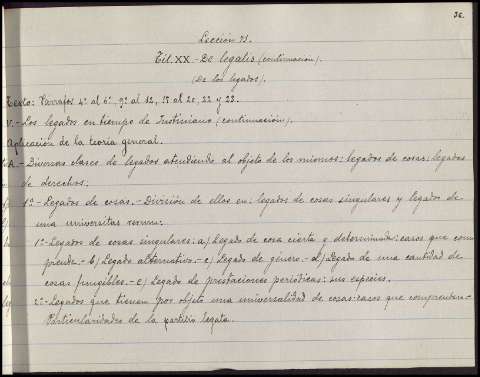 36.
Leccion 71.
Tit. XX.- De legatis (continuación).
(De los legados).
Texto: Parrafos 4º al 6º, 9º al 12, 17 al 20, 22 y 23.
V.- Los legados en tiempo de Justiniano (continuación).
Aplicación de la teoría general.
A.- Diversas clases de legados atendiendo al objeto de los mismos: legados de cosas; legados
de derechos;
1º- Legados de cosas.- División de ellos en: legados de cosas singulares y legados de
una universitas rerum;
1º- Legados de cosas singulares: a) Legado de cosa cierta y determinada: casos que com
prende.- b) Legado alternativo.- c) Legado de género.- d) Legado de una cantidad de
cosas fungibles.- e) Legado de prestaciones periódicas: sus especies.
2º- Legados que tienen por objeto una universalidad de cosas: casos que comprenden.-
Particularidades de la partitio legata.